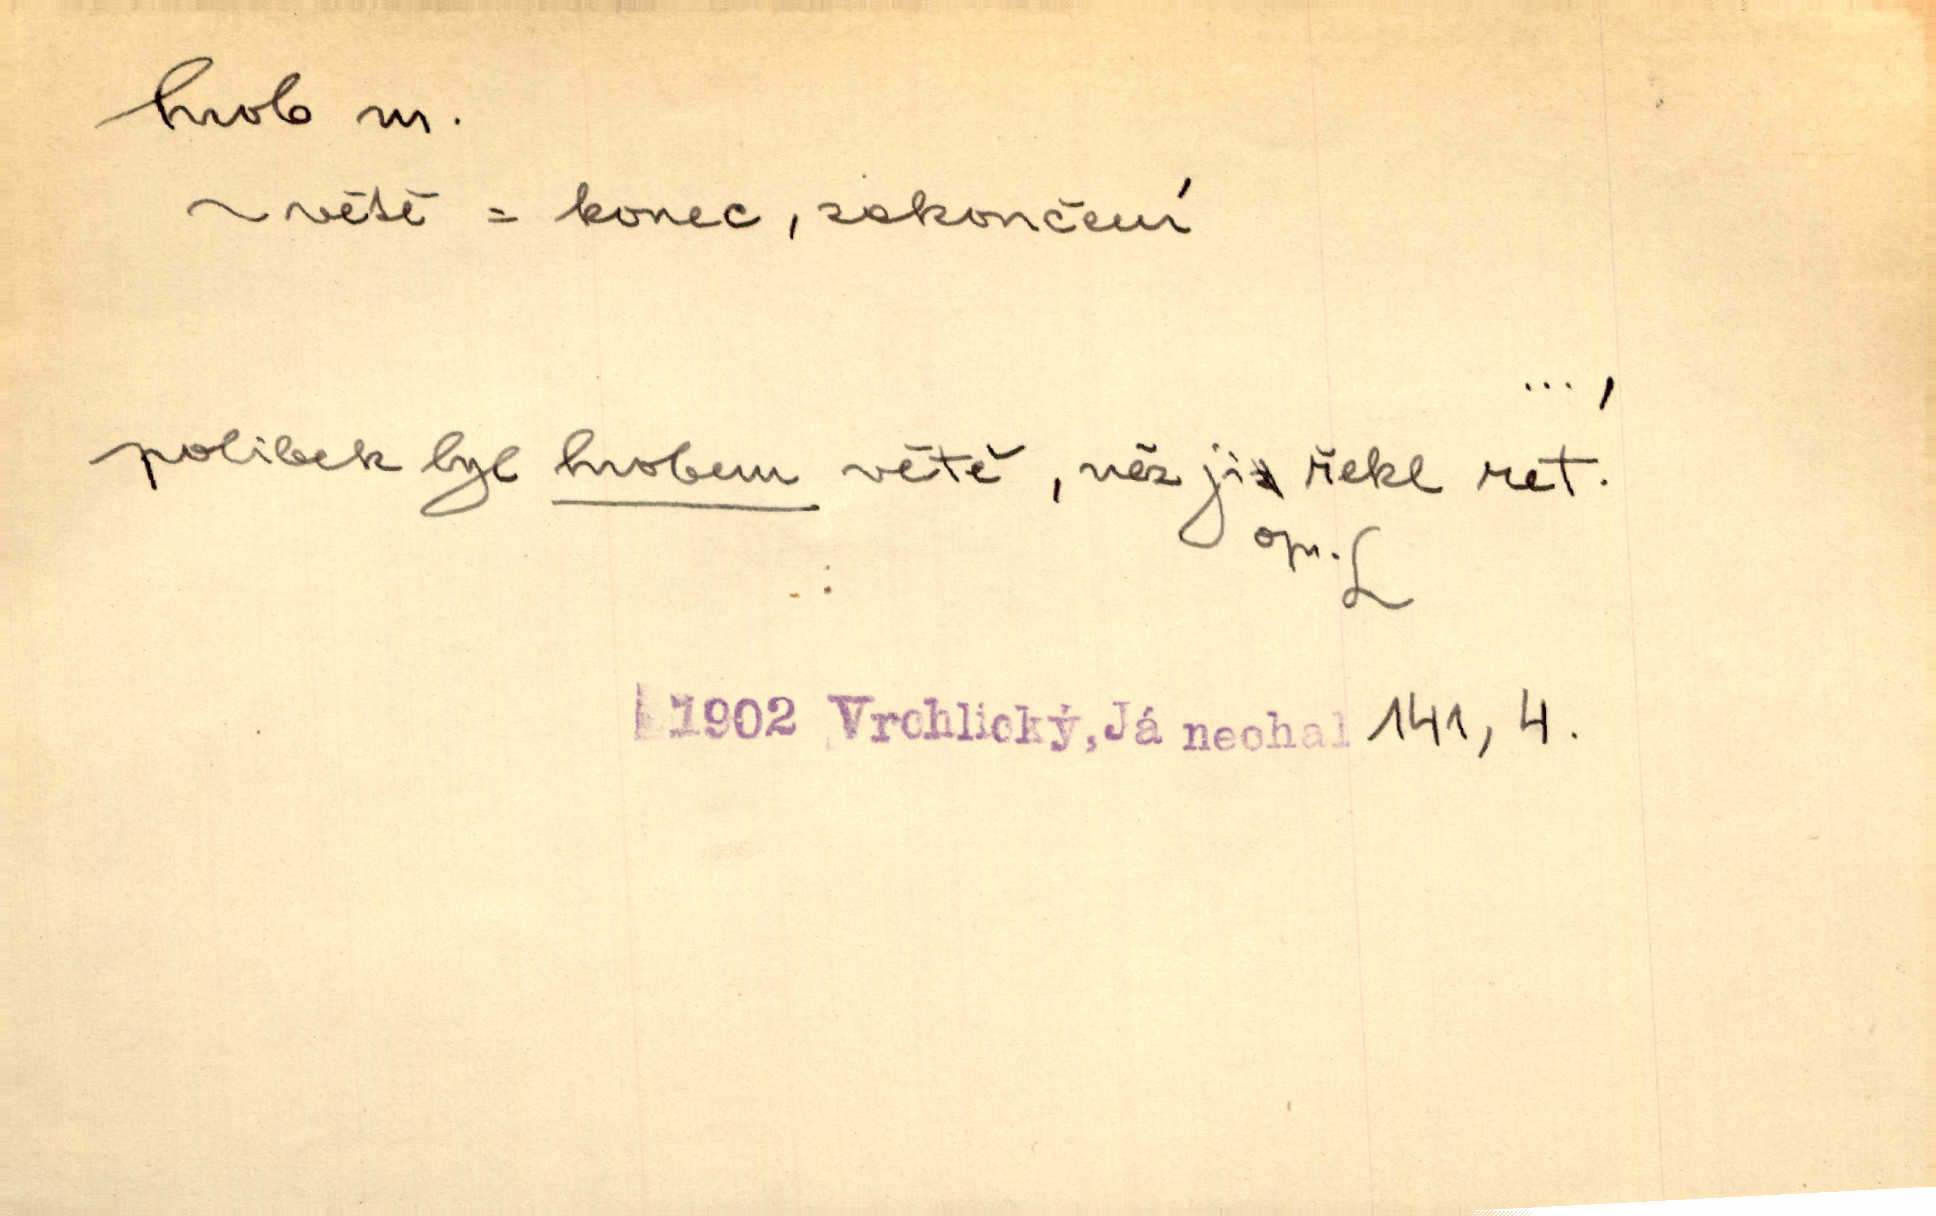 hrob m.
~ větě = konec, zakončení
... ,
polibek byl hrobem větě, než ji řekl ret.
opr. L
1902 Vrchlický, Já nechal 141, 4.